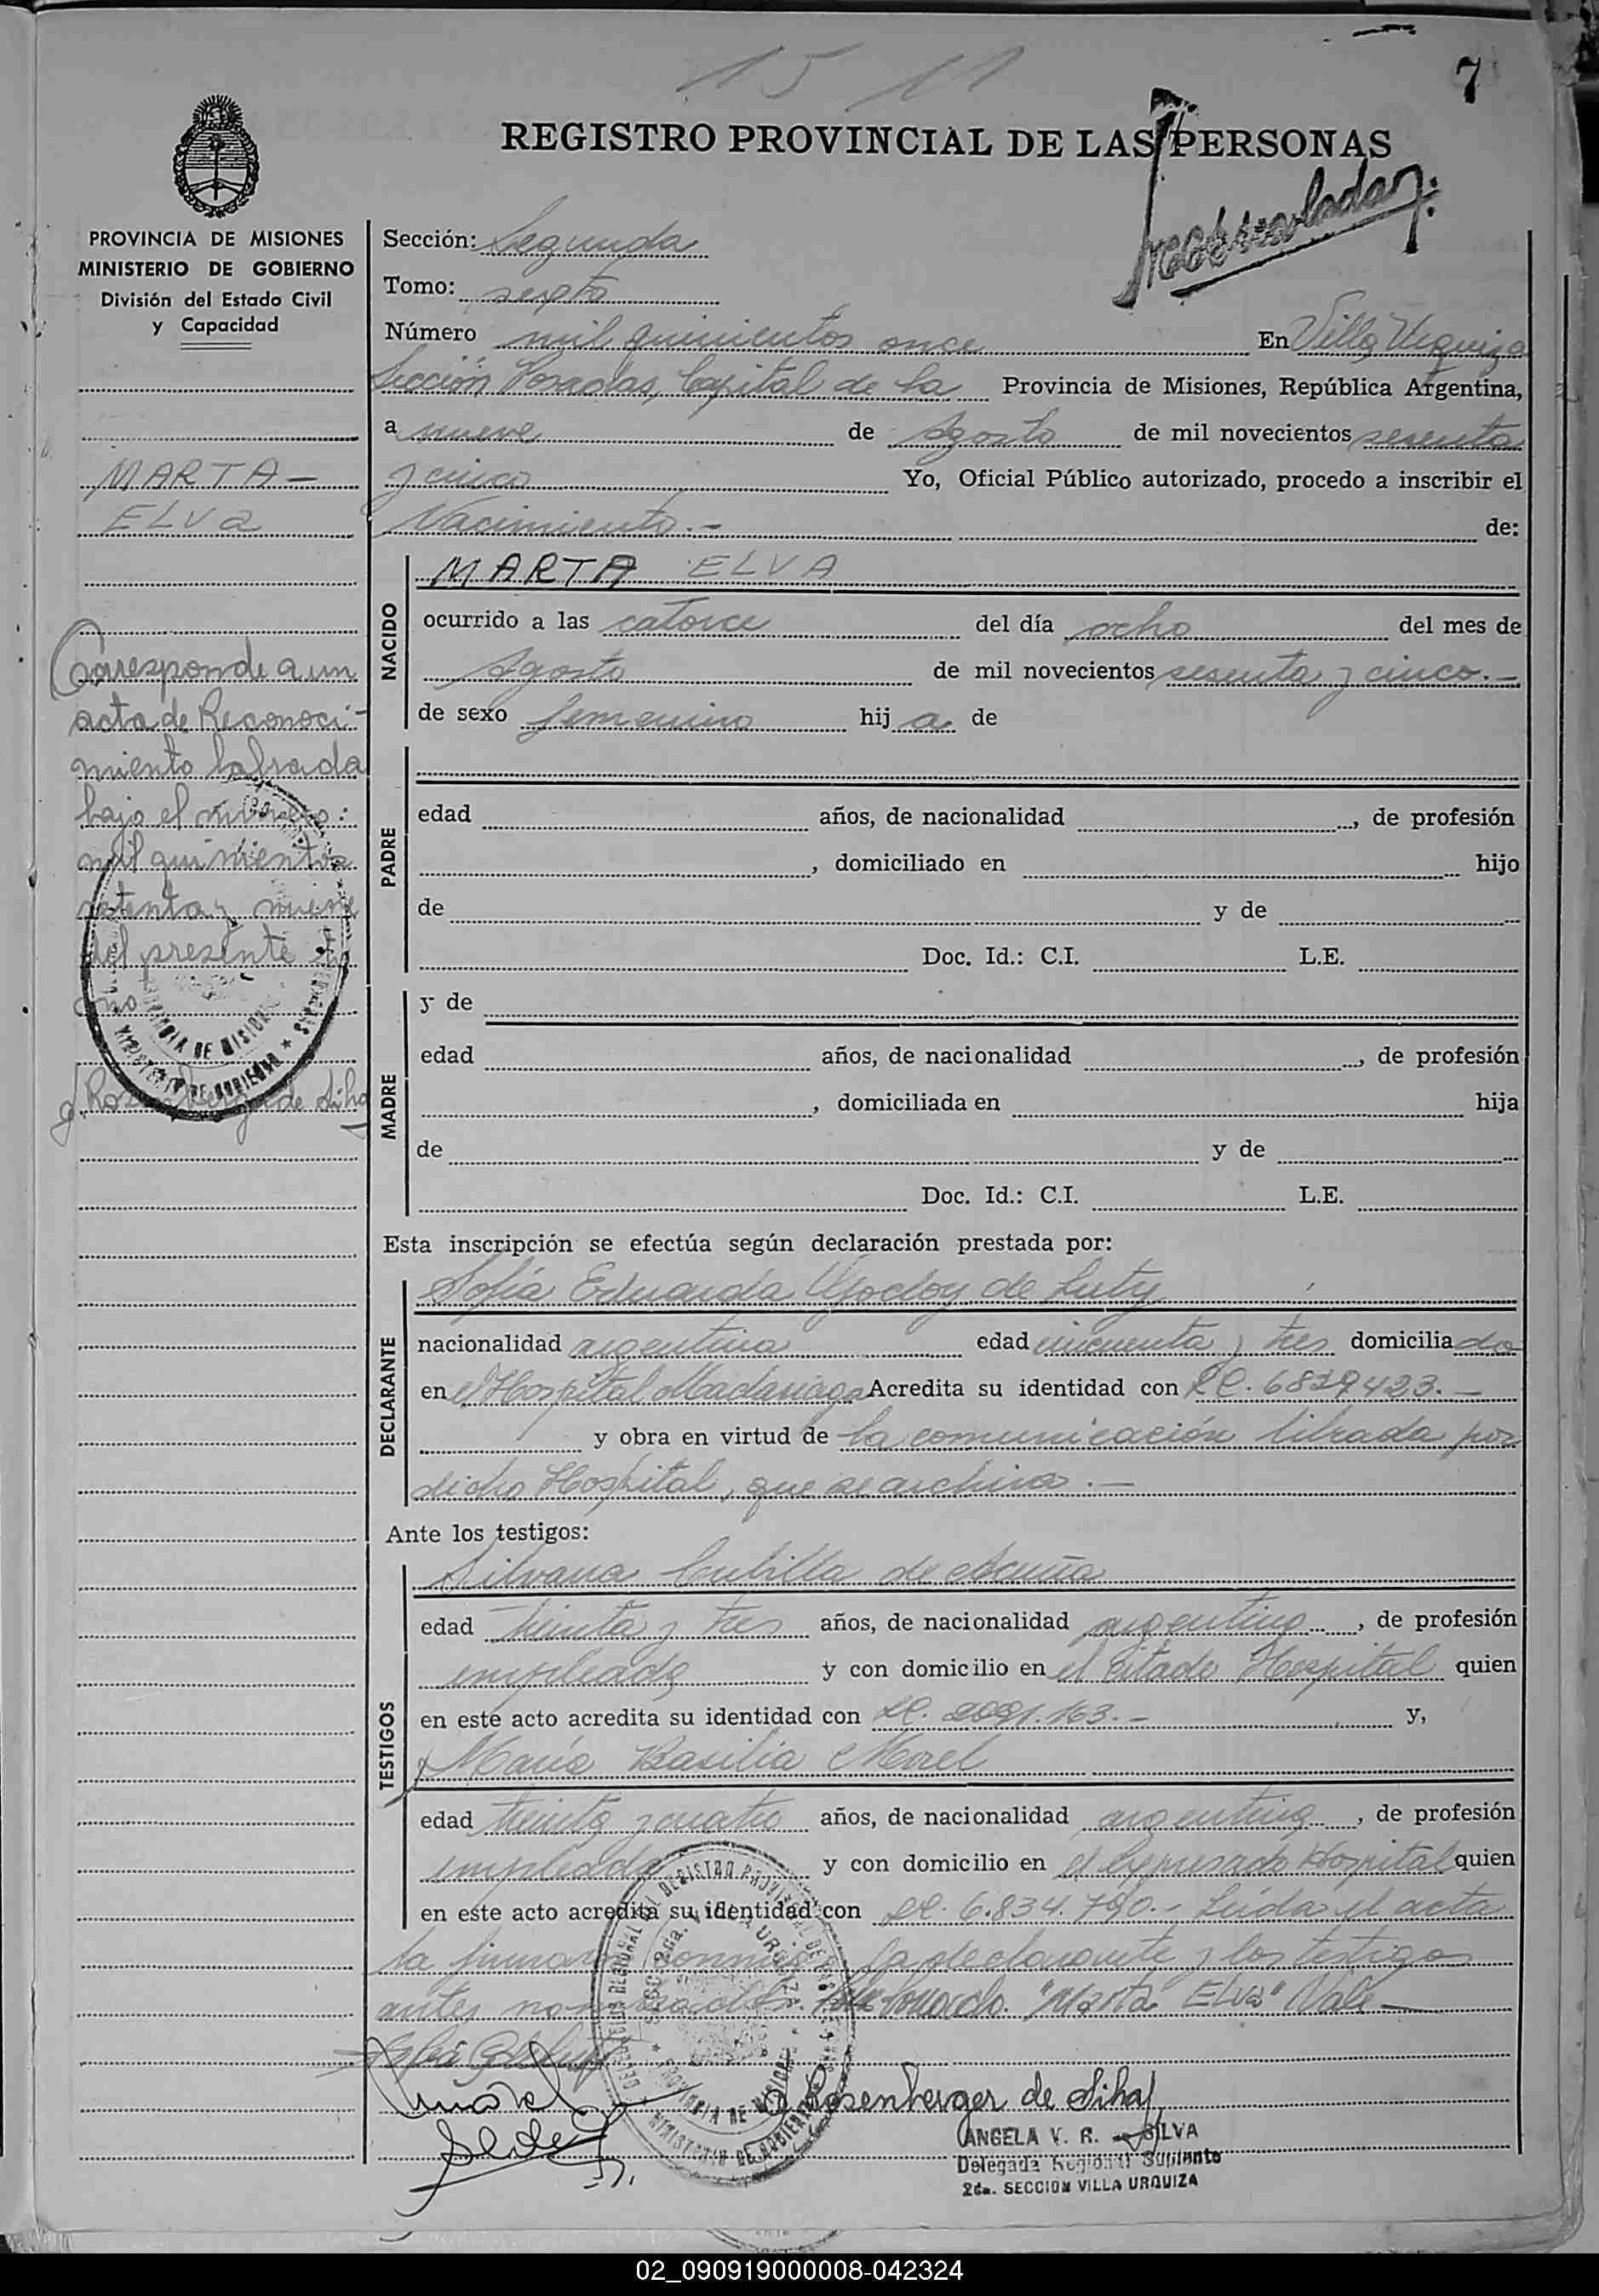 15 11
7
REGISTRO PROVINCIAL DE LAS PERSONAS
PROVINCIA DE MISIONES
MINISTERIO DE GOBIERNO
División del Estado Civil
y Capacidad
MARTA -
ELVa
Corresponde a un
acta de Reconoci-
miento labrada
bajo el número:
mil quinientos
setenta y nueve
del presente
g. Rosenberger de Silva
Sección: Segunda
Tomo: sexto
Número mil quinientos once En Villa Urquiza
Sección Posadas, Capital de la Provincia de Misiones, República Argentina,
a nueve de Agosto de mil novecientos sesenta
y cinco Yo, Oficial Público autorizado, procedo a inscribir el
Nacimiento.- de:
NACIDO
MARTA ELVA
ocurrido a las catorce del día ocho del mes de
Agosto de mil novecientos sesenta y cinco.-
de sexo femenino hij a de
PADRE
edad años, de nacionalidad , de profesión
, domiciliado en hijo
de y de
Doc. Id.: C.I. L.E.
MADRE
y de
edad años, de nacionalidad , de profesión
, domiciliada en hija
de y de
Doc. Id.: C.I. L.E.
Esta inscripción se efectúa según declaración prestada por:
DECLARANTE
Sofía Eduarda Godoy de Luty
nacionalidad argentina edad cincuenta y tres domicilia da
en el Hospital Madariaga Acredita su identidad con LC. 6819423.-
y obra en virtud de la comunicación librada por
dicho Hospital, que se archiva.-
Ante los testigos:
TESTIGOS
Silvana Cubilla de Acuña
edad treinta y tres años, de nacionalidad argentina , de profesión
empleada y con domicilio en el citado Hospital quien
en este acto acredita su identidad con LC. .163.- y,
María Basilia Morel
edad treinta y cuatro años, de nacionalidad argentina , de profesión
empleada y con domicilio en el expresado Hospital quien
en este acto acredita su identidad con LC. 6.834.790.- Leída el acta
la firman conmigo la declarante y los testigos
antes nombrados. "Marta ELva" Vale -
Rosenberger de Silva
ANGELA V. R. de SILVA
Delegada Regional Suplente
2da. SECCION VILLA URQUIZA
02_090919000008-042324